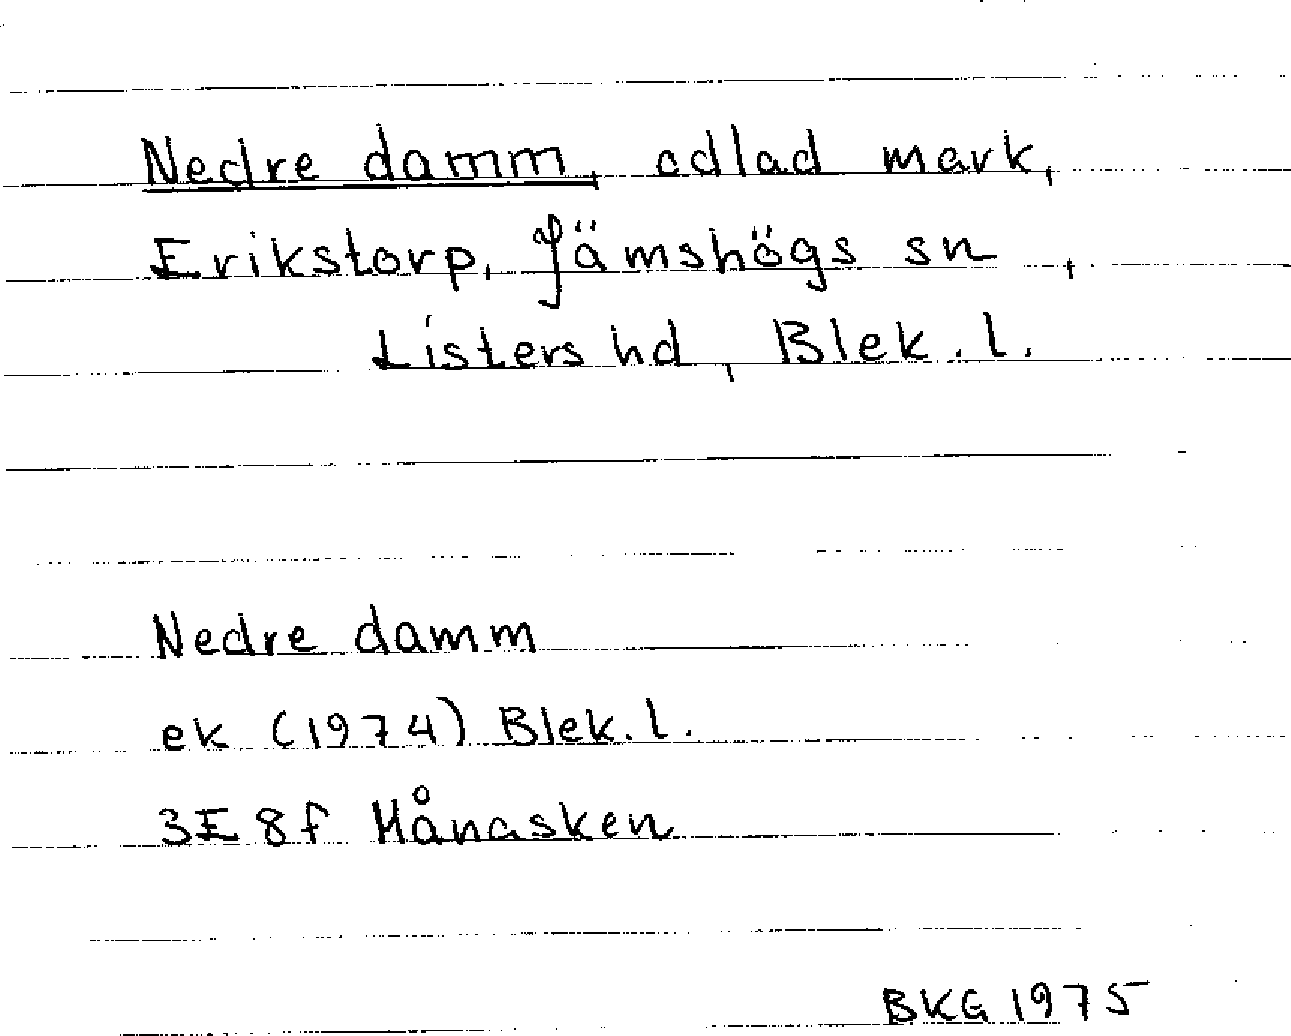 Nedre damm, odlad mark,
Erikstorp, Jämshögs sn,
Listers hd, Blek. l.
Nedre damm
ek (1974) Blek. l.
3E 8f Månasken
BKG 1975